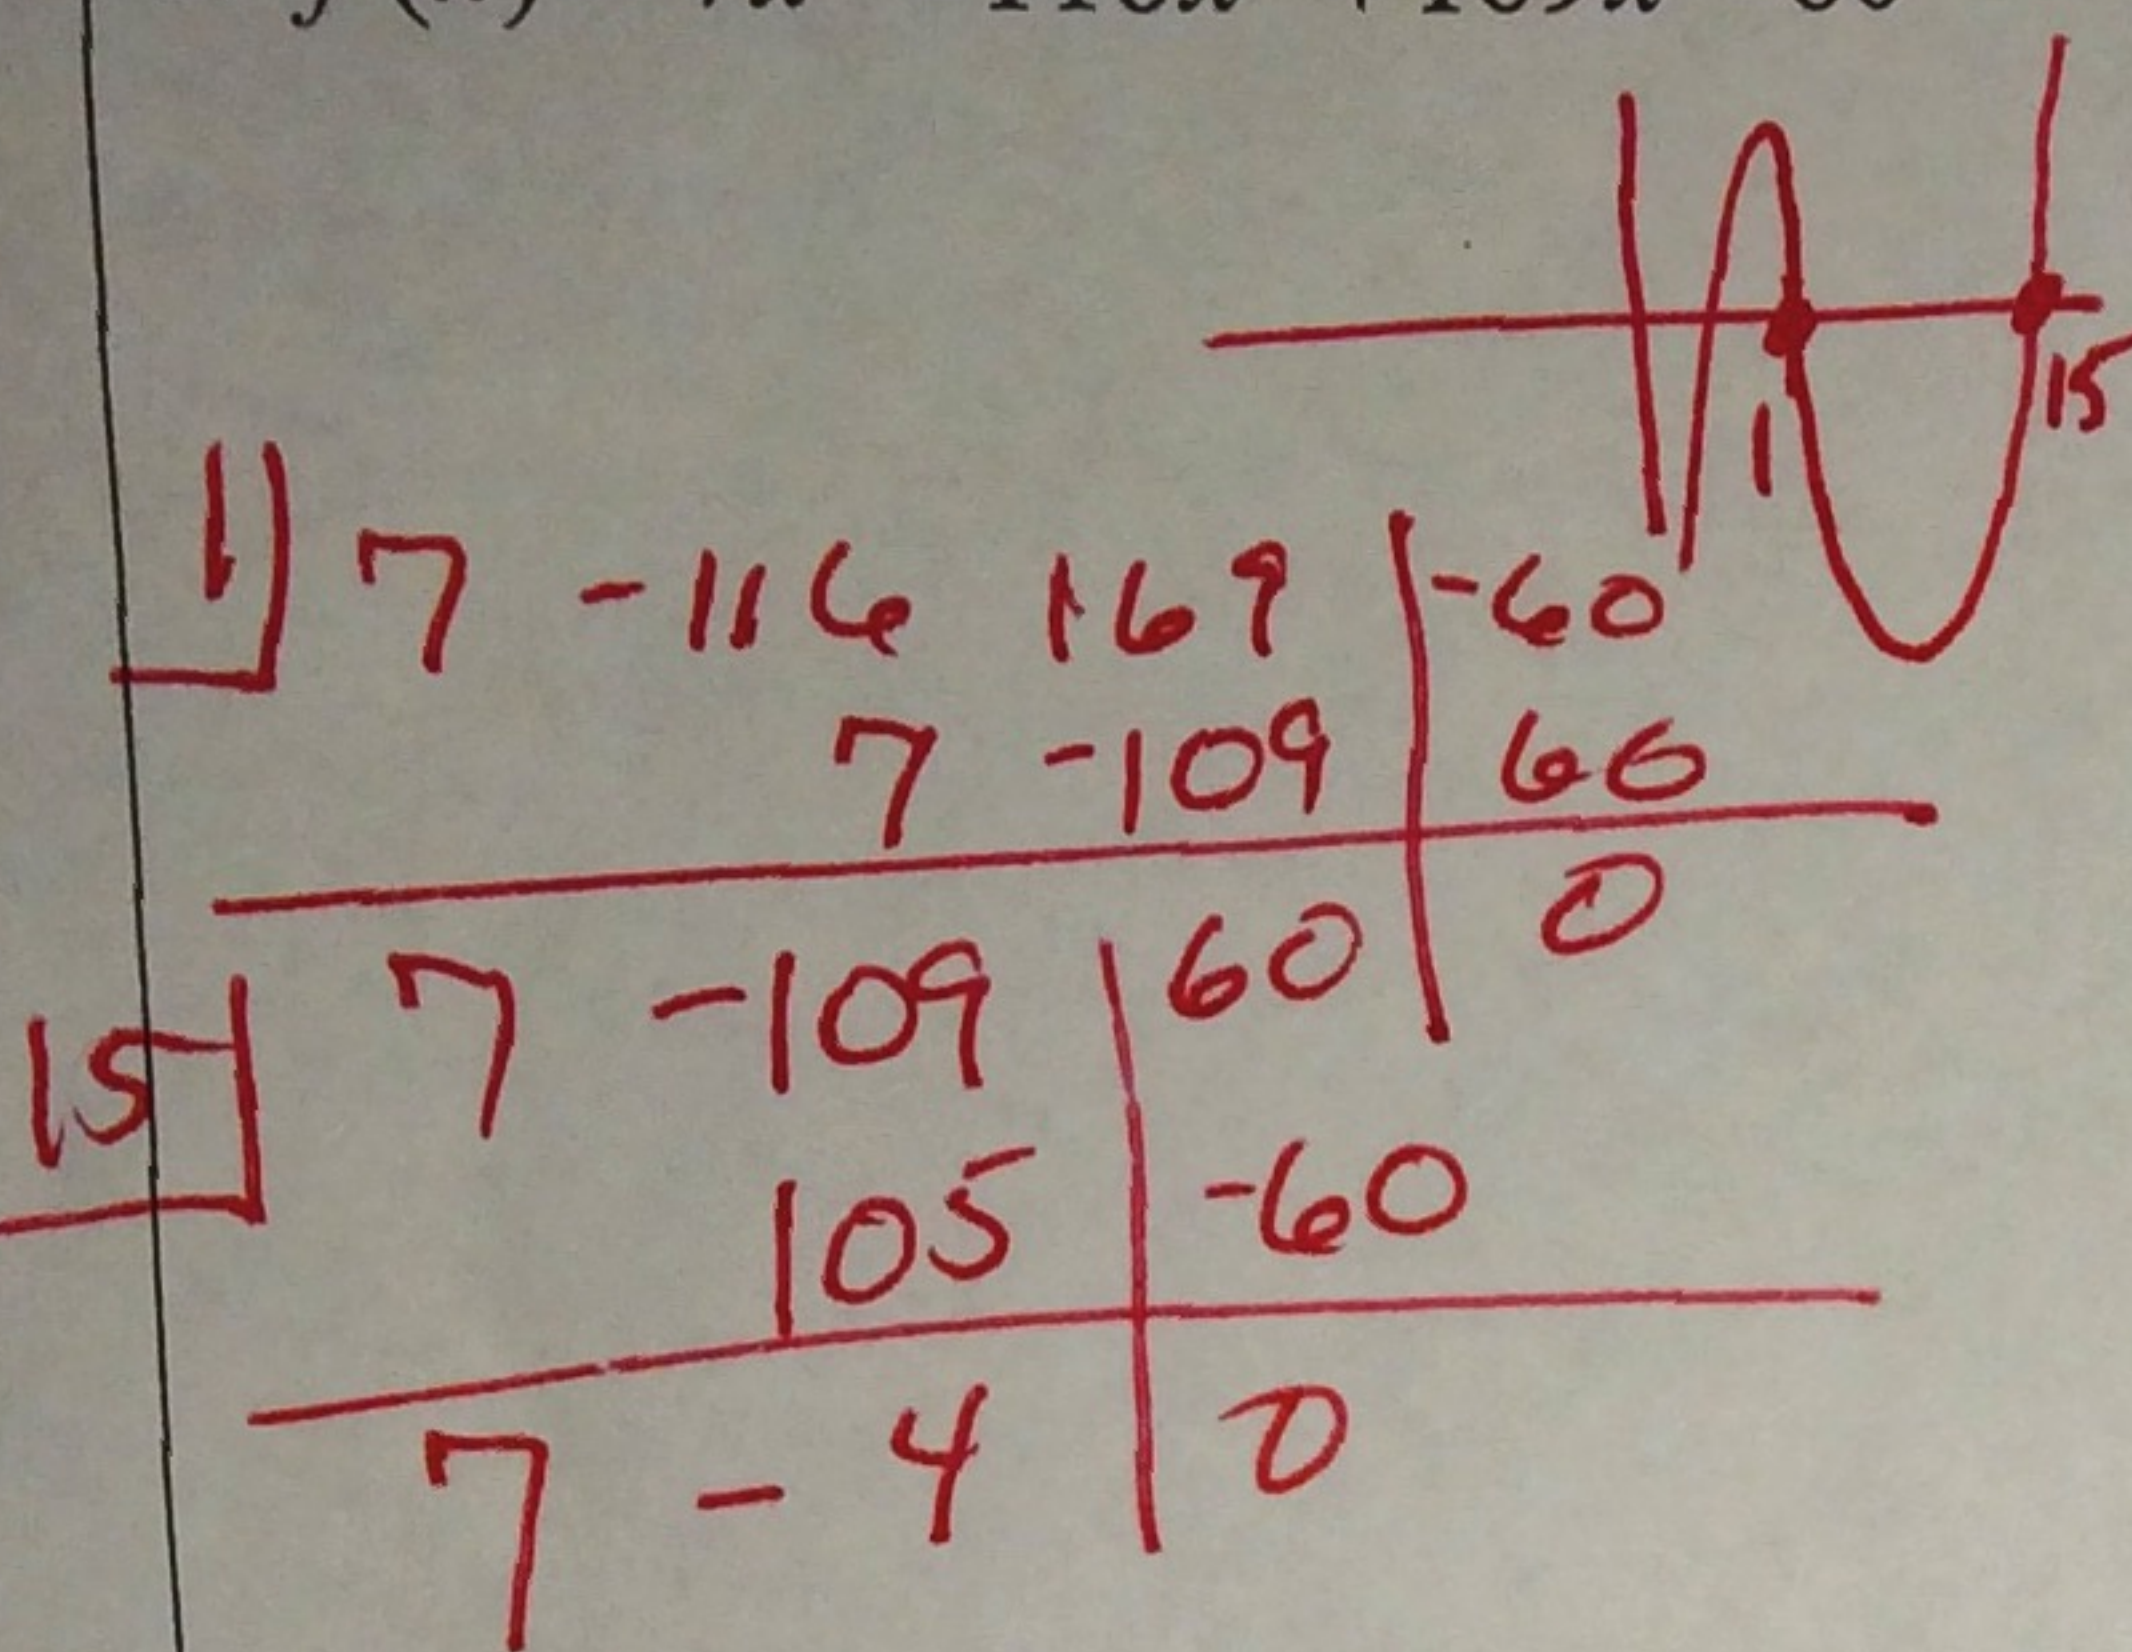 1 15
1 7 -116 169 -60
7 -109 60
7 -109 60 0
15 7 -109 60
105 -60
7 -4 0